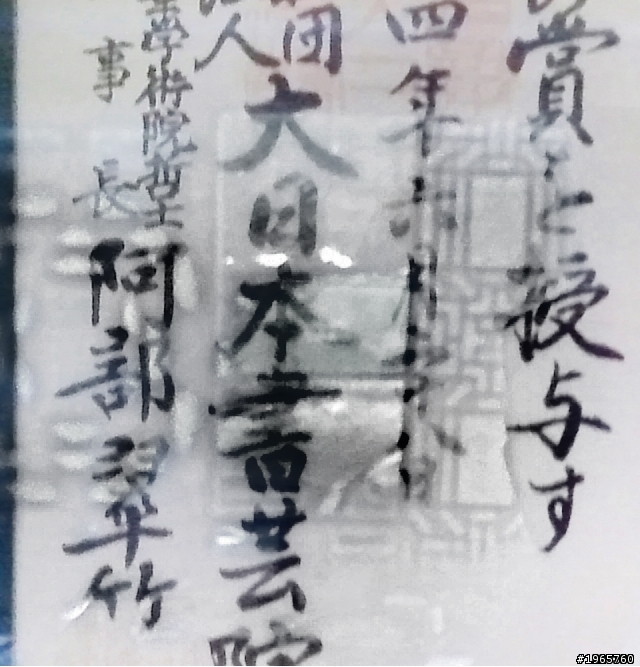 賞を授与す
四年六月
団
人
大日本書芸院
學術院
事
長
阿部翠竹
#1965760